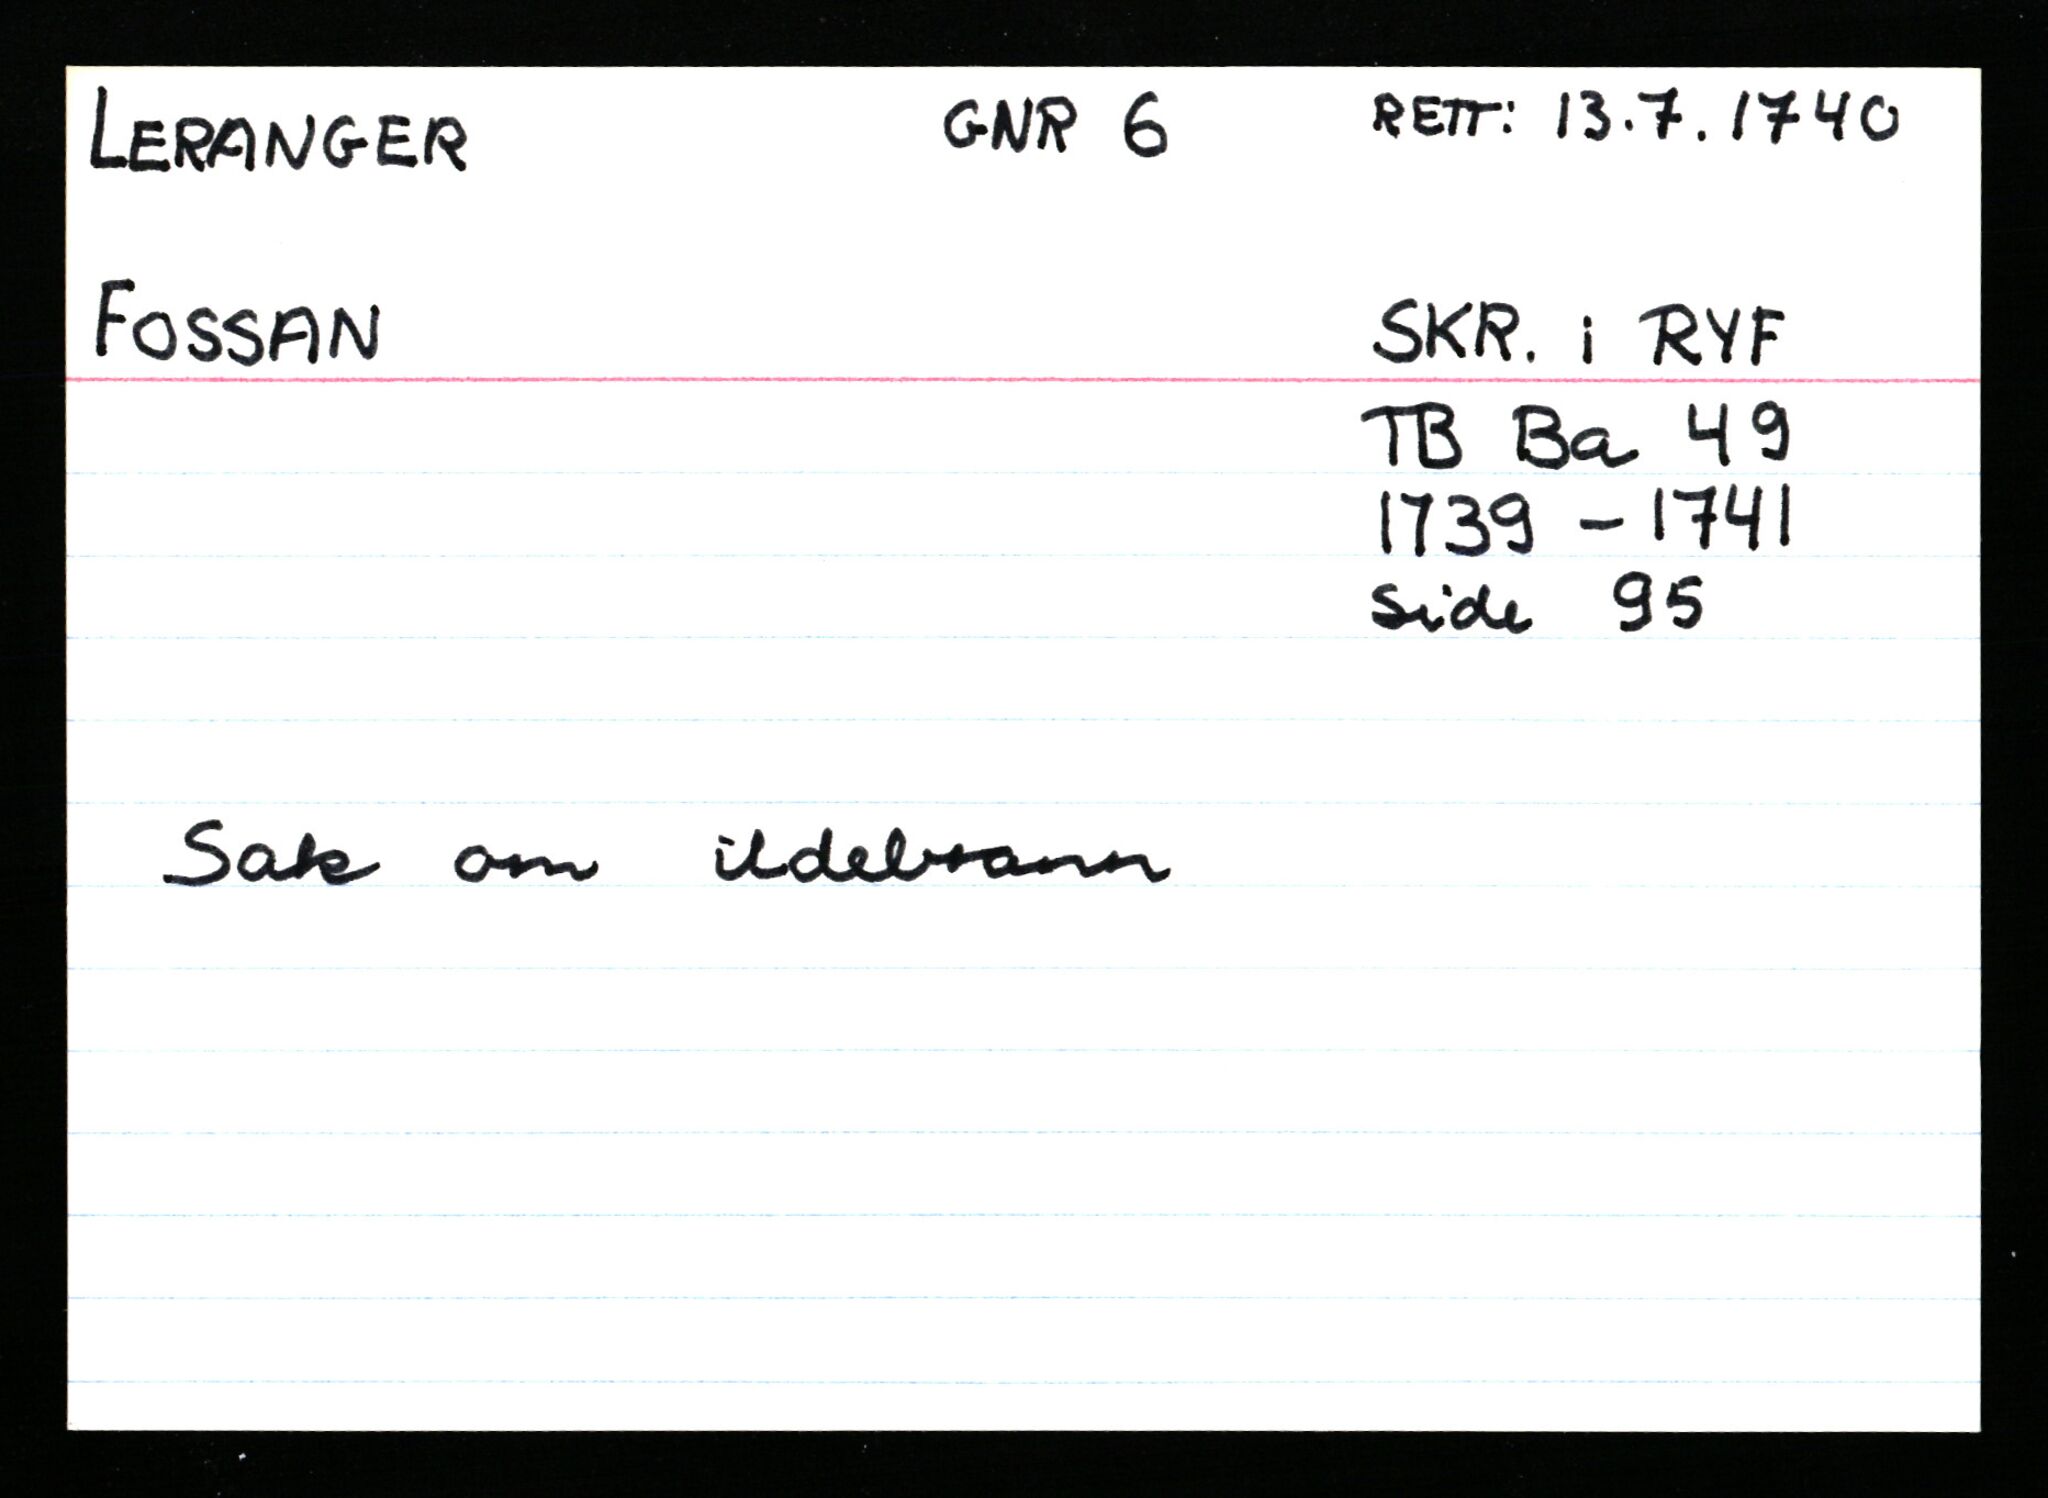 LERANGER GNR 6 RETT: 13.7.1740
FOSSAN SKR. i RYF
TB Ba 49
1739 - 1741
Side 95
Sak om ildebrann